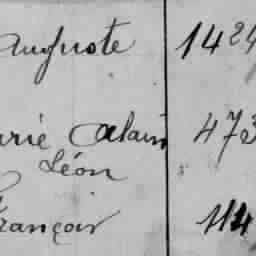 Auguste 1424
arie Alain 473
Léon
François 114